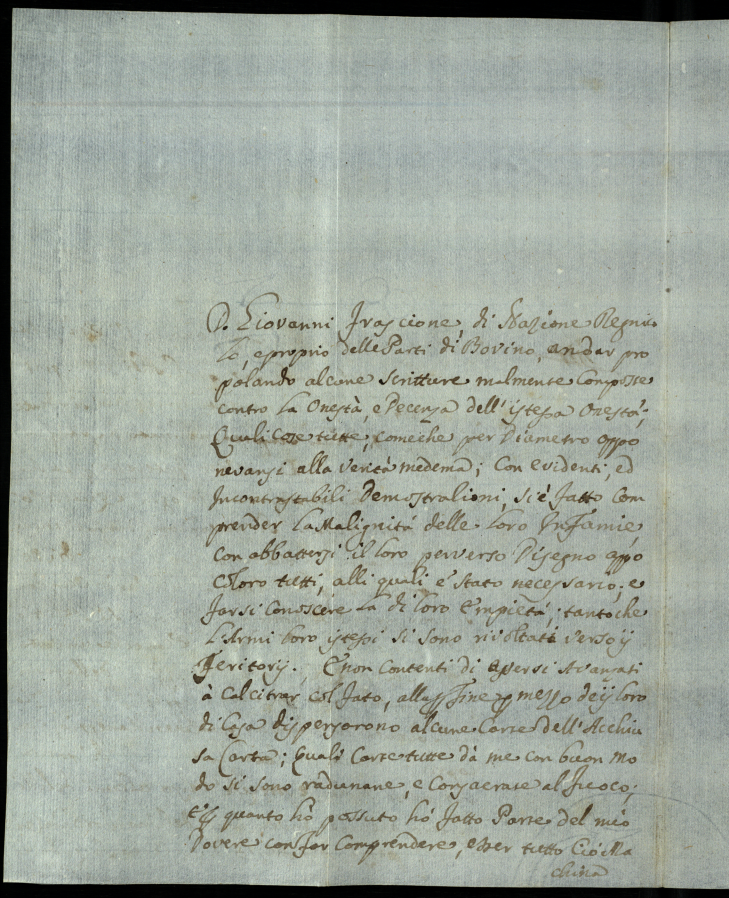 D. Giovanni Frascione, di Nazione Regnico
lo, e proprio delle Parti di Bovino, andar pro
palando alcune scritture malmente Composte
contro la Onestà, e Decenza dell'istessa Onestà;
Quali cose tutte, comeche per Diametro oppo
nevansi alla verità medema; Con evidenti, ed
Incontrastabili Demostrationi, si è fatto Com
prender la Malignità delle loro Infamie
con abbattersi il loro perverso Disegno appo
Coloro tutti, alli quali è stato necessario; e
farsi Conoscere la di loro Empietà; tantoche
L'Armi loro istessi si sono rivoltati verso ij
Feritorij. E non Contenti di aversi Avanzati
à Calcitrar col fato, alla fine mezzo deij loro
di Casa dispersorono alcune Carte dell'
sa Carta; Quali Carte tutte dà me con buon Mo
do si sono radunane, e Consacrate al fuoco;
E quanto hò possuto hò fatto Parte del mio
Dovere con far Comprendere, esser tutto Ciò Ma
china